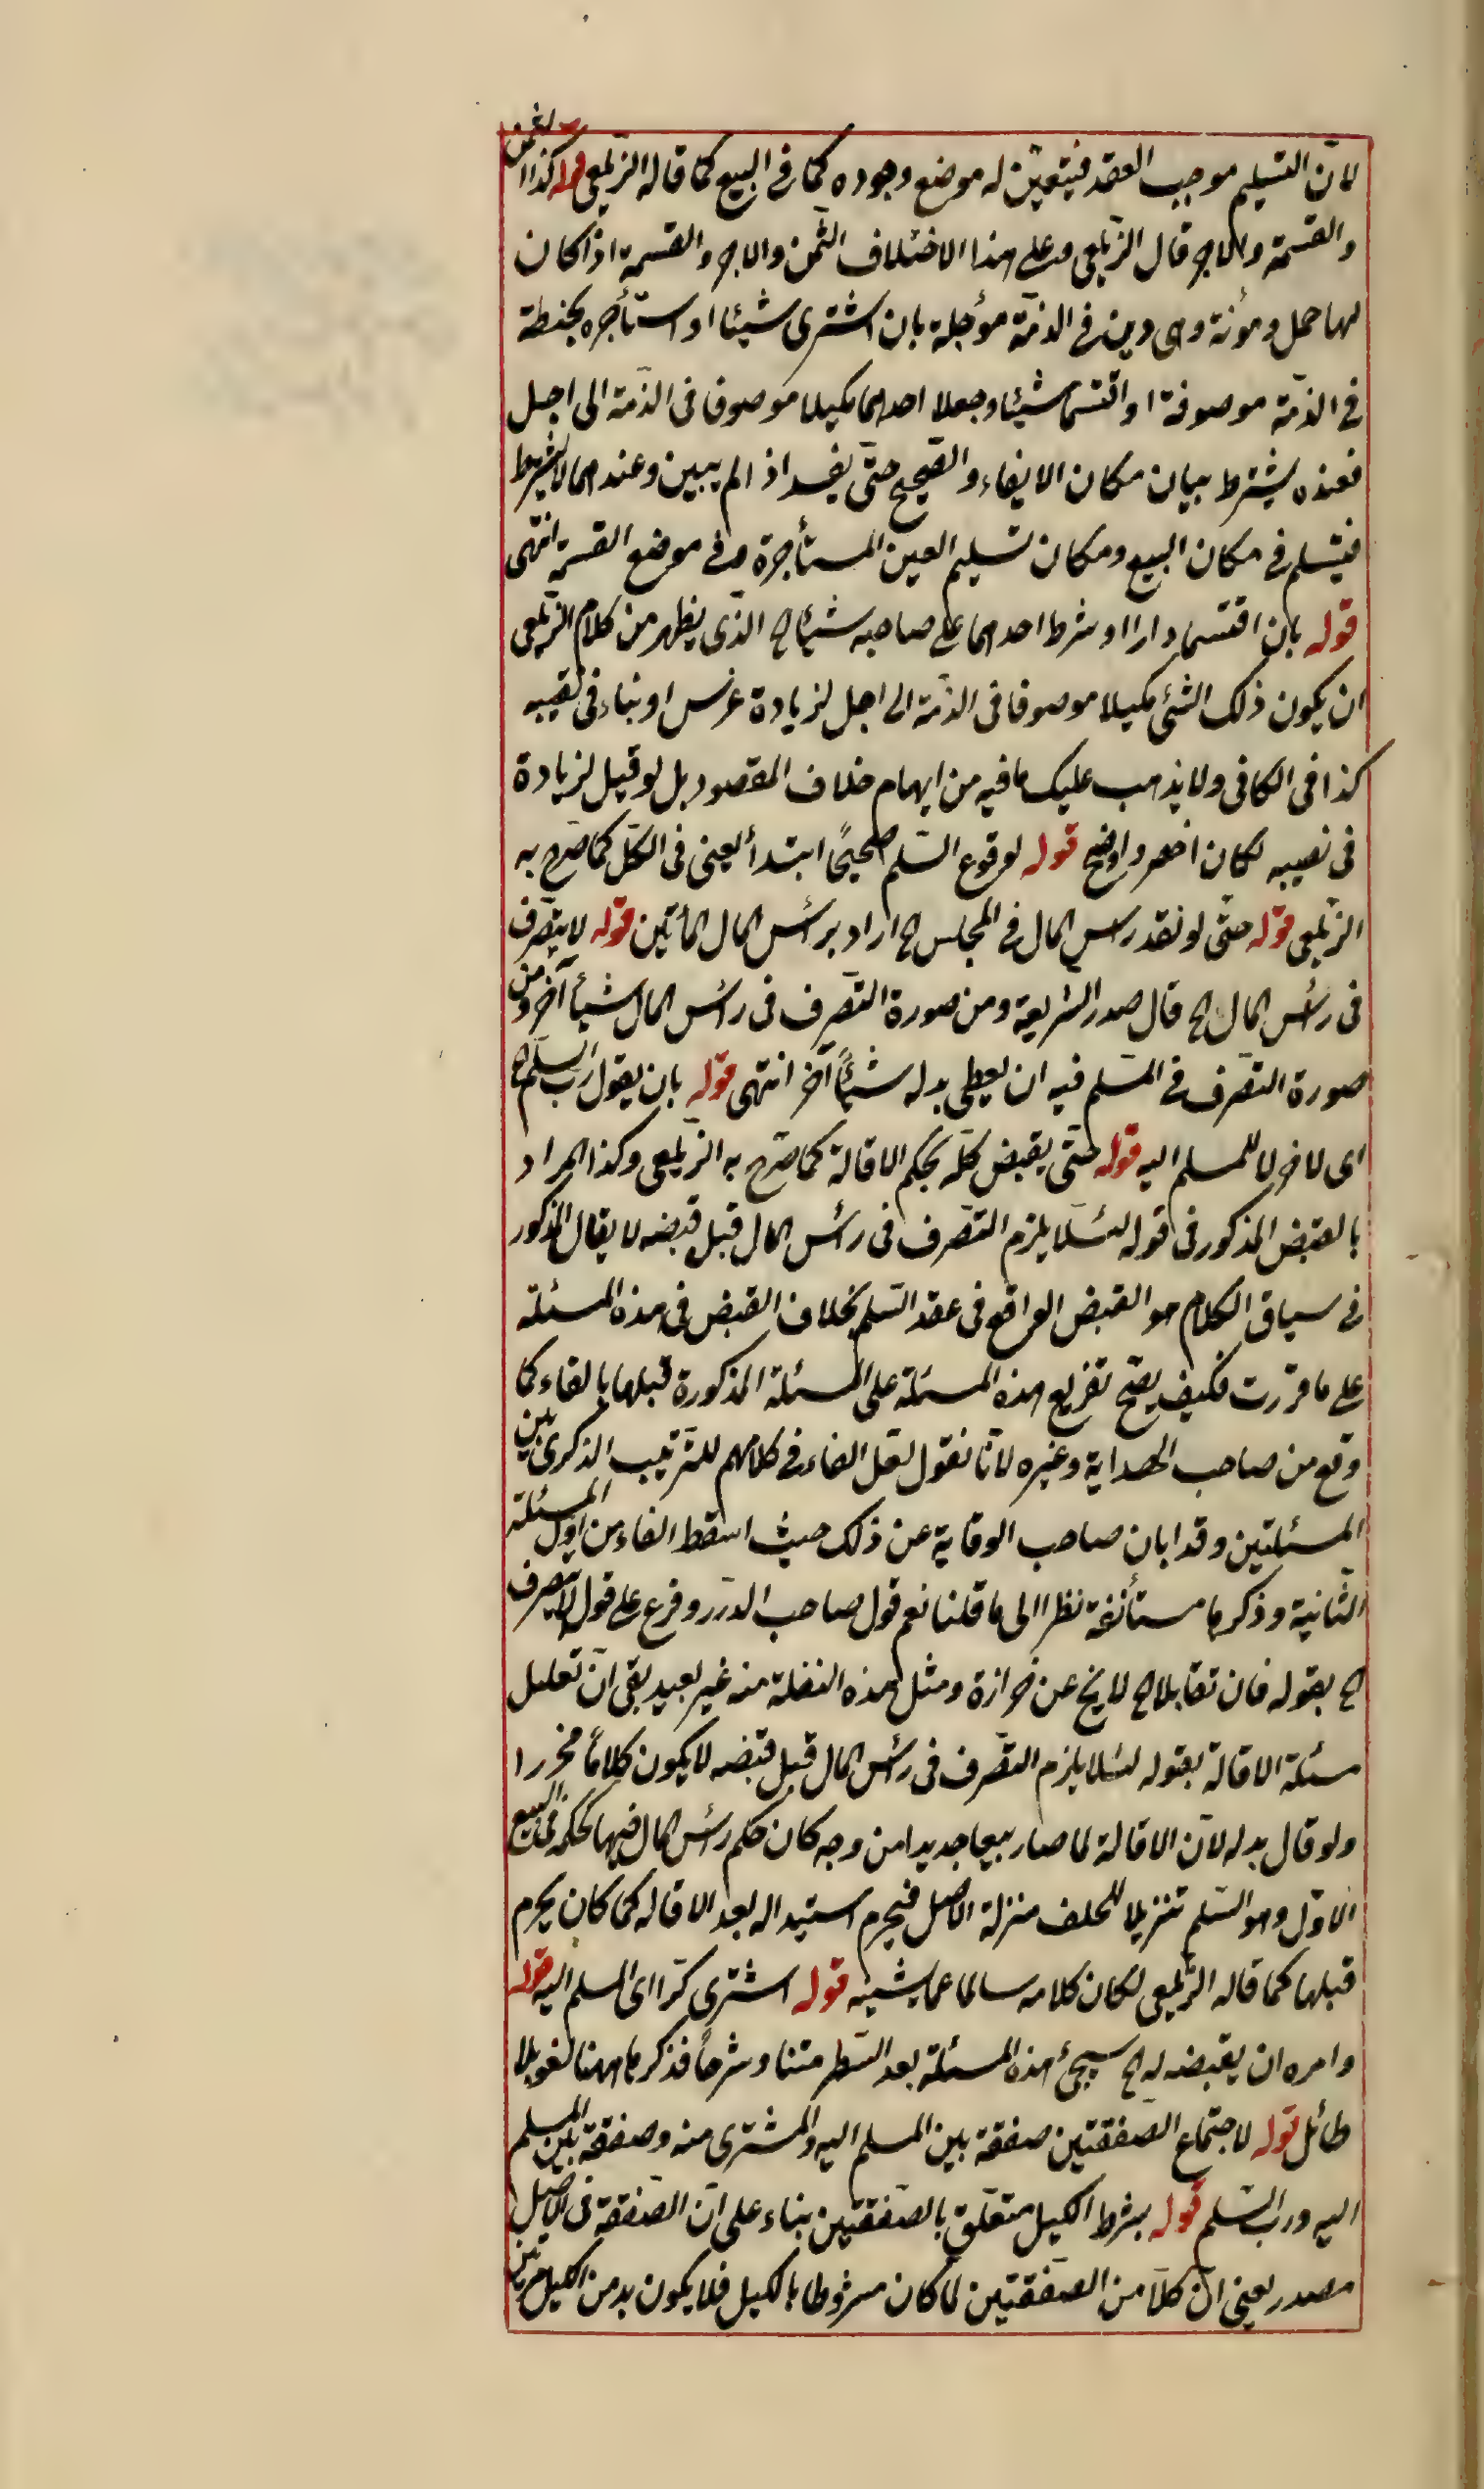 لانّ التسليم موجب العقد فيتعيّن له موضع وجوده كما فى البيع كما قاله الزيلعى قوله كذا الثمن
والقسمة والاجر قال الزيلعى وعلى هذا الاختلاف الثمن والاجر والقسمة اذا كان
لها حمل ومؤنة وهى دين فى الذمّة مؤجلة بان اشترى شيئا او استأجره بحنطة
فى الذمّة موصوفة او اقتسما شيئا وجعلا احدهما مكيلا موصوفا فى الذمّة الى اجل
فعنده يشترط بيان مكان الايفاء والصّحيح حتّى يفسد اذ الم يبين وعندهما لا يشترط
فيتسلم فى مكان البيع ومكان تسليم العين المستأجرة وفى موضع القسمة انتهى
قوله بان اقتسما دارا او شرط احدهما على صاحبه شيئا الخ الذى يظهر من كلام الزيلعى
ان يكون ذلك الشئ مكيلا موصوفا فى الذمّة الى اجل لزيادة غرس او بناء فى نصيبه
كذا فى الكافى ولا يذهب عليك ما فيه من ايهام خلاف المقصود بل لو قيل لزيادة
فى نصيبه لكان اخصر واوضح قوله لوقوع السّلم صحيحًا ابتدأ يعنى فى الكلّ كما صرّح به
الزيلعى قوله حتّى لو نقد رأس المال فى المجلس الخ اراد برأس المال المأتين قوله لا يتصرّف
فى رأس المال الخ قال صدر الشّريعة ومن صورة التّصرف فى رأس المال شيأ آخر ومن
صورة التصّرف فى المسلم فيه ان يعطى بدله شيئًا آخر انتهى قوله بان يقول ربّ السلم الخ
اى لاخر لا للمسلم اليه قوله حتّى يقبض كلّه بحكم الاقالة كما صرّح به الزيلعى وكذا المراد
بالقبض المذكور فى قوله لئلا يلزم التّصرف فى رأس المال قبل قبضه لا يقال المذكور
فى سياق الكلام هو القبض الواقع فى عقد السّلم بخلاف القبض فى هذه المسئلة
على ما قرّرت فكيف يصّح تفريع هذه المسئلة على المسئلة المذكورة قبلها بالفاء كما
وقع من صاحب الهداية وغيره لانّا نقول لعل الفاء فى كلامهم للترتيب الذكرى بين
المسئلتين وقد ابان صاحب الوقاية عن ذلك حيث اسقط الفاء من اوّل المسئلة
الثانية وذكرها مستأنفة نظرا الى ما قلنا نعم قول صاحب الدّرر وفرع على قول لا يتصرف
الخ بقوله فان تقايلا الخ لا يخ عن حزازة ومثل هذه الغفلة منه غير بعيد بقى انّ تعليل
مسئلة الاقالة بقوله لئلا يلزم التّصرف فى رأس المال قبل قبضه لا يكون كلامًا محررا
ولو قال بدله لانّ الاقالة لما صار بيعا جديدا من وجه كان حكم رأس المال فيها كحكمه فى البيع
الاوّل وهو السّلم تنزيلا للخلف منزلة الاصل فيحرم استبداله بعد الاقاله كما كان يحرم
قبلها كما قاله الزيلعى لكان كلامه سالما عما يشينه قوله اشترى كرّا اى المسلم اليه قوله
وامره ان يقبضه له الخ سيجئ هذه المسئلة بعد السّطر متنا وشرحًا فذكرها ههنا لغو بلا
طائل قوله لاجتماع الصّفقتين صفقة بين المسلم اليه والمشترى منه وصفقة بين المسلم
اليه وربّ السّلم قوله بشرط الكيل متعلّق بالصّفقتين بناء على انّ الصّفقة فى الاصل
مصدر يعنى انّ كلاّ من الصّفقتين لما كان مشروطا بالكيل فلا يكون بد من الكيل مرتين